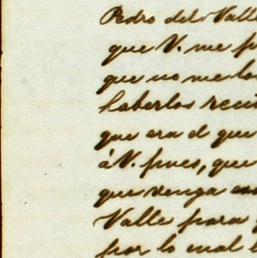 Pedro del Valle
que V. me
que no me
haberlos
que era el que
à V. pues, que
que venga
Valle para
por lo cual